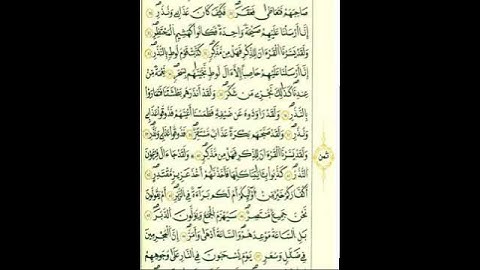 صاحبهم فتعاطى فعقر فكيف كان عذابي ونذر
إنا أرسلنا عليهم صيحة واحدة فكانوا كهشيم المحتظر
ولقد يسرنا القرءان للذكر فهل من مدكر كذبت قوم لوط بالنذر
إنا أرسلنا عليهم حاصبا إلا ءال لوط نجينهم بسحر نعمة من
عندنا كذلك نجزي من شكر ولقد أنذرهم بطشتنا فتماروا
بالنذر ولقد رودوه عن ضيفه فطمسنا أعينهم فذوقوا عذابي
ونذر ولقد صبحهم بكرة عذاب مستقر فذوقوا عذابي ونذر
ولقد يسرنا القرءان للذكر فهل من مدكر ولقد جاء ءال فرعون
النذر كذبوا بـايتنا كلها فأخذنهم أخذ عزيز مقتدر
أكفاركم خير من أولئكم أم لكم براءة في الزبر أم يقولون
نحن جميع منتصر سيهزم الجمع ويولون الدبر
بل الساعة موعدهم والساعة أدهى وأمر إن المجرمين
في ضلل وسعر يوم يسحبون في النار على وجوههم
ثمن